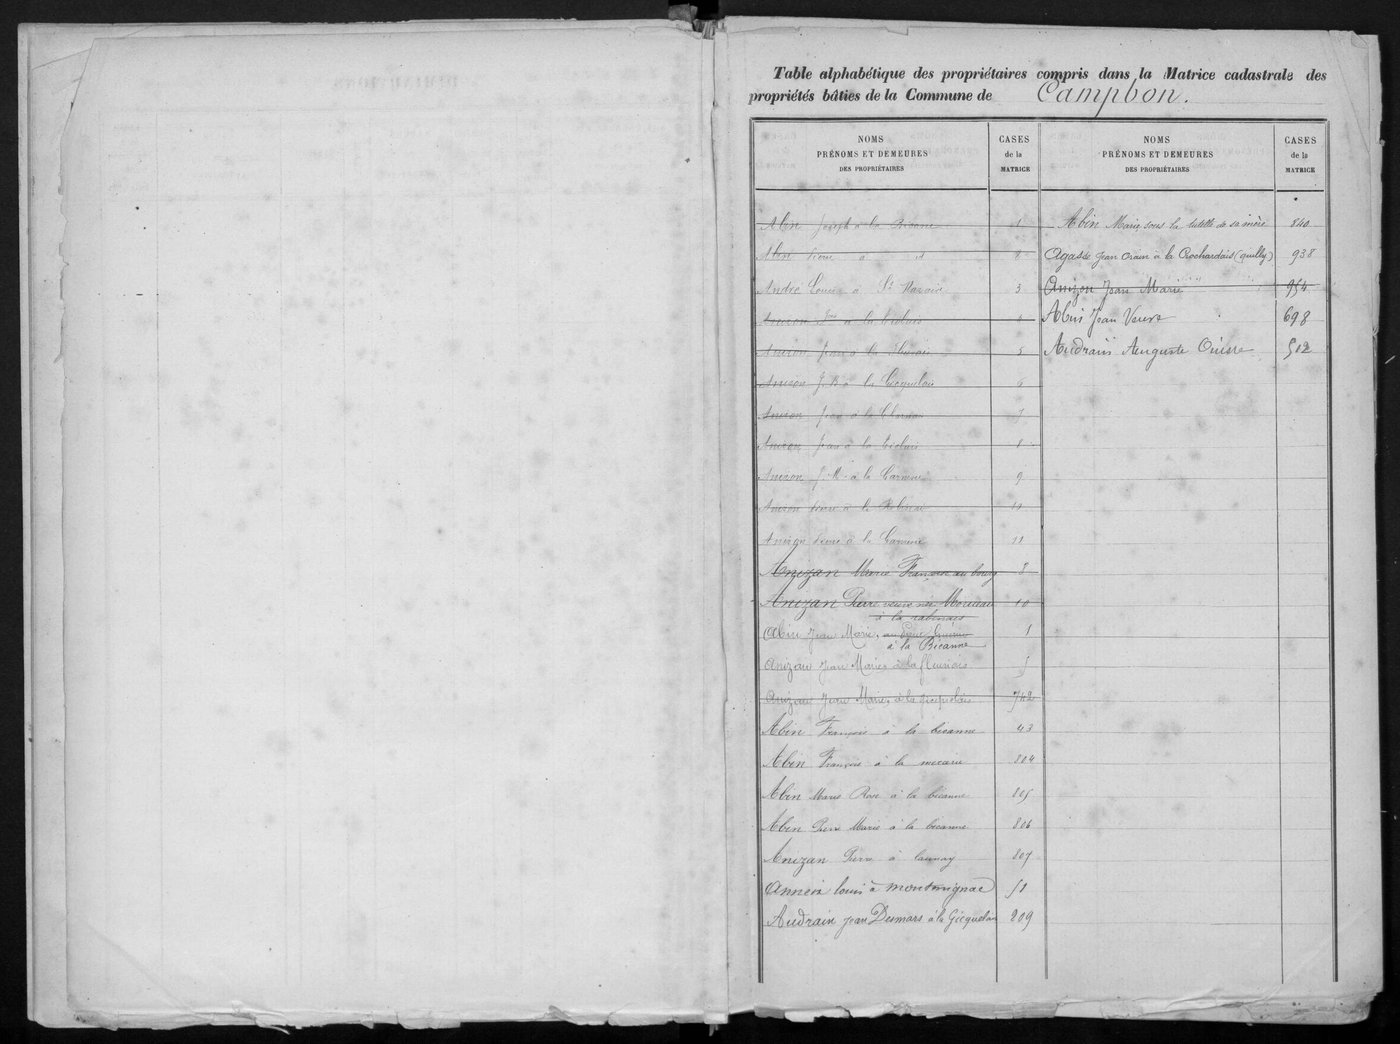 Table alphabétique des propriétaires compris dans la Matrice cadastrale des
propriétés bâties de la Commune de Campbon.
NOMS
PRÉNOMS ET DEMEURES
DES PROPRIÉTAIRES
CASES
de la
MATRICE
Abin Joseph à la Bicane 1
Abin Pierre à id 2
André Louis à St Nazaire 3
Anizon à la 4
Anizon Jean à la 5
Anizon J. B. à la Gicquelais 6
Anizon Jean à la 7
Anizon Jean à la 8
Anizon J. M. à la 9
Anizon Pierre à la 10
Anizon Pierre à la 11
Anizan Marie Françoise au bourg 8
Anizan Pierre veuve née Moriceau 10
à la rabinais
Abin Jean Marie, 1
à la Bicanne
Anizan Jean Marie à la fleuriais 5
Anizan Jean Marie, à la gicquelais 742
Abin François à la bicanne 43
Abin François à la 804
Abin Marie Rose à la bicanne 805
Abin Pierre Marie à la bicanne 806
Anizan Pierre à launay 807
louis à montmignac 51
Audrain Jean Desmars à la Gicquelais 209
NOMS
PRÉNOMS ET DEMEURES
DES PROPRIÉTAIRES
CASES
de la
MATRICE
Abin Marie sous la tutelle de sa mère 840
Agasse Jean à la Rochardais (quilly) 938
Anizon Jean Marie 954
Abin Jean Veuve 698
Audrain Auguste 502